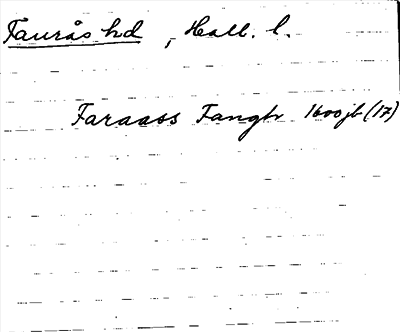 Faurås hd, Hall. l.
Faraass Fangh 1600 jb (17)